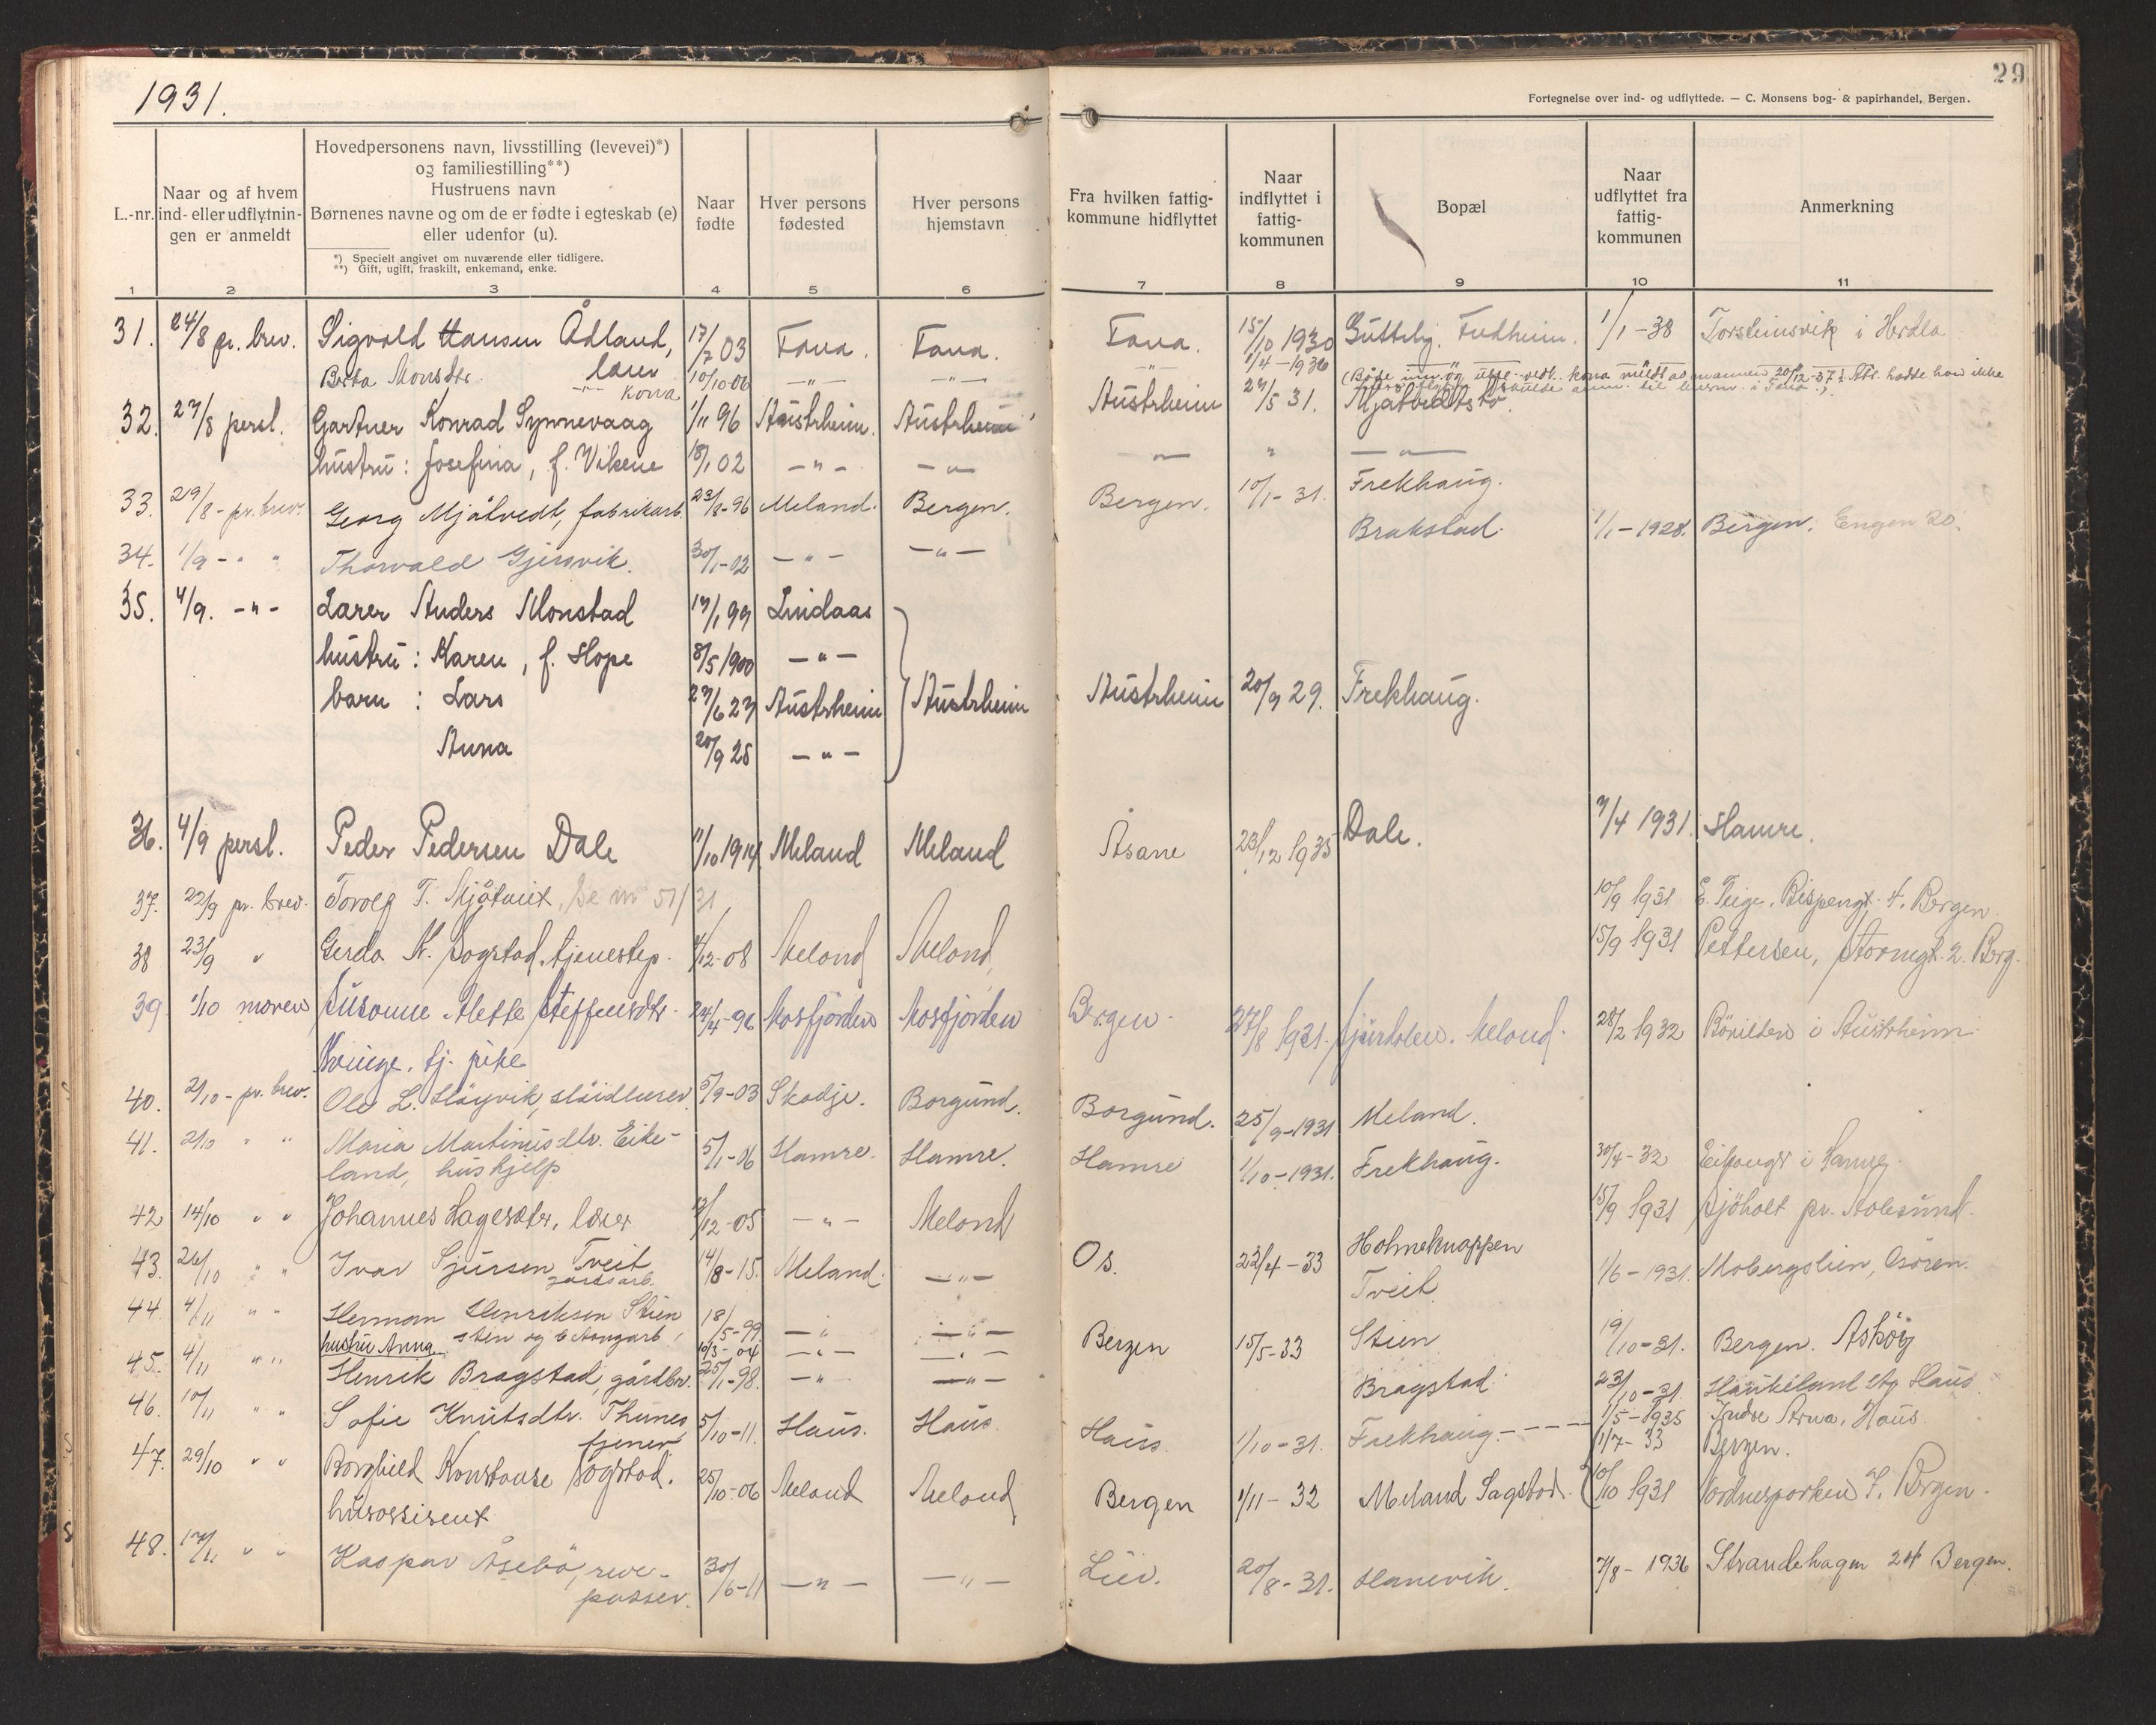 1931.
29
Fortegnelse over ind- og udflyttede. — C. Monsens bog- & papirhandel, Bergen.
L.-nr.
Naar og af hvem
ind- eller udflytnin-
gen er anmeldt
Hovedpersonens navn, livsstilling (levevei)*)
og familiestilling**)
Hustruens navn
Børnenes navne og om de er fødte i egteskab (e)
eller udenfor (u).
*) Specielt angivet om nuværende eller tidligere.
**) Gift, ugift, fraskilt, enkemand, enke.
Naar
fødte
Hver persons
fødested
Hver persons
hjemstavn
Fra hvilken fattig-
kommune hidflyttet
Naar
indflyttet i
fattig-
kommunen
Bopæl
Naar
udflyttet fra
fattig-
kommunen
Anmerkning
1 2 3 4 5 6 7 8 9 10 11
31. 24/8 pr. brev. Sigvald Hansen Ådland, 17/2 03 Fana. Fana. Fana. 15/10 1930 1/1-38 Torsteinsvik i Herdla
lærer
Brita Monsdtr. -"- kona 10/10-06 -"- -"- -"- 1/4-1936
32. 27/8 persl. Gartner Konrad Synnevaag 1/11 96 Austrheim. Austrheim Austrheim 27/5 31. Mjåtvedtstø.
hustru: Josefina, f. Vikene 18/1 02 -"- -"- -"- " -"-
33. 29/8- pr. brev. Georg Mjåtvedt, fabrikarb. 23/8-96 Meland. Bergen. Bergen. 10/1-31. Frekhaug.
34. 1/9- " " Thorvald Gjersvik. 30/1-02 -"- -"- Brakstad. 1/1-1928. Bergen. Engen 20.
35. 4/9. -"- Lærer Anders Monstad 17/1 99 Lindaas
hustru: Karen, f. Hope 8/5 1900 -"-
barn: Lars 27/6 27 Austrheim Austrheim Austrheim 20/9 29. Frekhaug.
Anna 20/9 28 -"-
36. 4/9 persl. Peder Pedersen Dale 11/10 1914 Meland Meland Åsane 23/12 1935 Dale. 7/4 1931. Hamre.
37. 22/9 pr. brev. Torolf T. Mjåtveit, Se nr 51/31 10/9 1931 E. Teige, Bispengt. 4. Bergen
38 23/9 " Gerda K. Sagstad, tjenestep. 4/12-08 Meland Meland 15/9 1931 Pettersen, Stormgt. 2. Berg.
39 1/10 moren Susanne Alette Steffensdtr. 24/4-96 Mosfjorden Mosfjorden Bergen. 27/8 1931. Meland. 28/2 1932 i Austrheim
Kvinge, tj. pike
40. 2/10- pr. brev. Ole L. Høyvik, 5/9-03 Skodje. Borgund. Borgund. 25/9-1931 Meland.
41. 2/10 " " Maria Martinusdtr. Eike- 5/1-06 Hamre. Hamre. Hamre 1/10-1931. Frekhaug. 30/4-32 Eikanger i Hamre.
land, hushjelp
42 14/10 " " Johannes Lagesæter, lærer 12/12-05 -"- Meland 15/9 1931 Sjöholt pr. Aalesund.
43. 26/10 " " Ivar Sjursen Tveit 14/8-15. Meland. -"- Os. 22/4-33 Holmeknappen
gårdsarb. Tveit 1/6-1931. Mobergslien, Osören.
44. 4/11 " " Herman Henriksen Stien 18/5-99. -"- -"- Bergen 15/5-33 Stien 19/10-31. Bergen. Askøy
hustru Anna sten og betongarb. 10/3-04 -"- -"-
45. 4/11 " " Henrik Bragstad, gårdbr. 25/1-98. -"- -"- Bragstad. 23/10-31. Haukeland st. Haus.
46. 10/11 " " Sofie Knutsdtr. Thunes 5/10-11. Haus. Haus. Haus. 1/10-31. Frekhaug. 1/5-1935 Indre Arna, Haus.
tjener 1/7-33 Bergen.
47. 29/10 " " Borghild Konstanse Sagstad. 25/10-06 Meland Meland Bergen 1/11-32 Meland Sagstad. 10/10 1931 Nordnesparken 7. Bergen.
husassisent
48. 17/11 " " Kaspar Åsebø, reve- 30/6-11 -"- -"- 20/8-31. Hanevik. 7/8-1936 Strandehagen 24 Bergen.
passer.